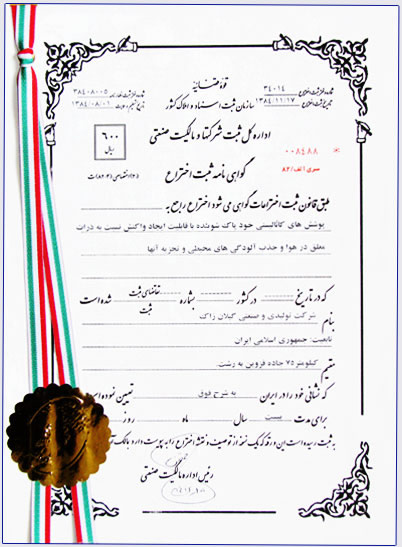 قوه قضائیه
سازمان ثبت اسناد و املاک کشور
شماره دفتر ثبت اختراع ۳۴۰۱۴
تاریخ ثبت اختراع ۱۳۸۴/۱۱/۱۷
۳۸۴۰۸۰۰۵
۱۳۸۴/۰۸/۰۱
اداره کل ثبت شرکتها و مالکیت صنعتی
۶۰۰
ریال
۰۰۸۴۸۸
سری الف/۸۲
گواهی نامه ثبت اختراع
طبق قانون ثبت اختراعات گواهی می شود اختراع راجع به
پوشش های کاتالیستی خود پاک شونده با قابلیت ایجاد واکنش نسبت به ذرات
معلق در هوا و جذب آلودگی های محیطی و تجزیه آنها
که در تاریخ در کشور بشماره تقاضای ثبت
ثبت شده است
بنام شرکت تولیدی و صنعتی گیلان زاک
تابعیت: جمهوری اسلامی ایران
مقیم کیلومتر ۷۵ جاده قزوین به رشت
که نشانی خود را در ایران به شرح فوق تعیین نموده
برای مدت بیست سال ماه روز
به ثبت رسیده است این ورقه که یک نسخه از توصیف و نقشه اختراع را به پیوست دارد بمالک آن
رئیس اداره مالکیت صنعتی